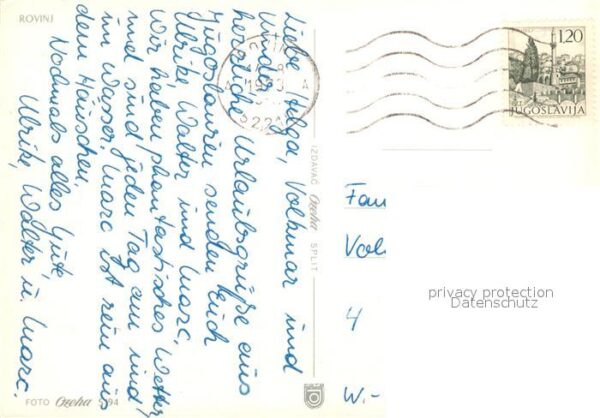 ROVINJ
Liebe Helga, Volkmar und
herzliche Urlaubsgrüße aus
Jugoslawien senden Euch
Ulrike, Walter und Marc,
Wir haben phantastisches Wetter,
und sind jeden Tag am und
im Wasser. Marc ist rein aus
dem Häuschen.
Nochmals alles Gute
Ulrike, Walter u. Marc.
FOTO Ozeha 5/94
IZDAVAČ Ozeha SPLIT
1973
5221
1.20
JUGOSLAVIJA
Fam
Vol
4
W.-
privacy protection
Datenschutz